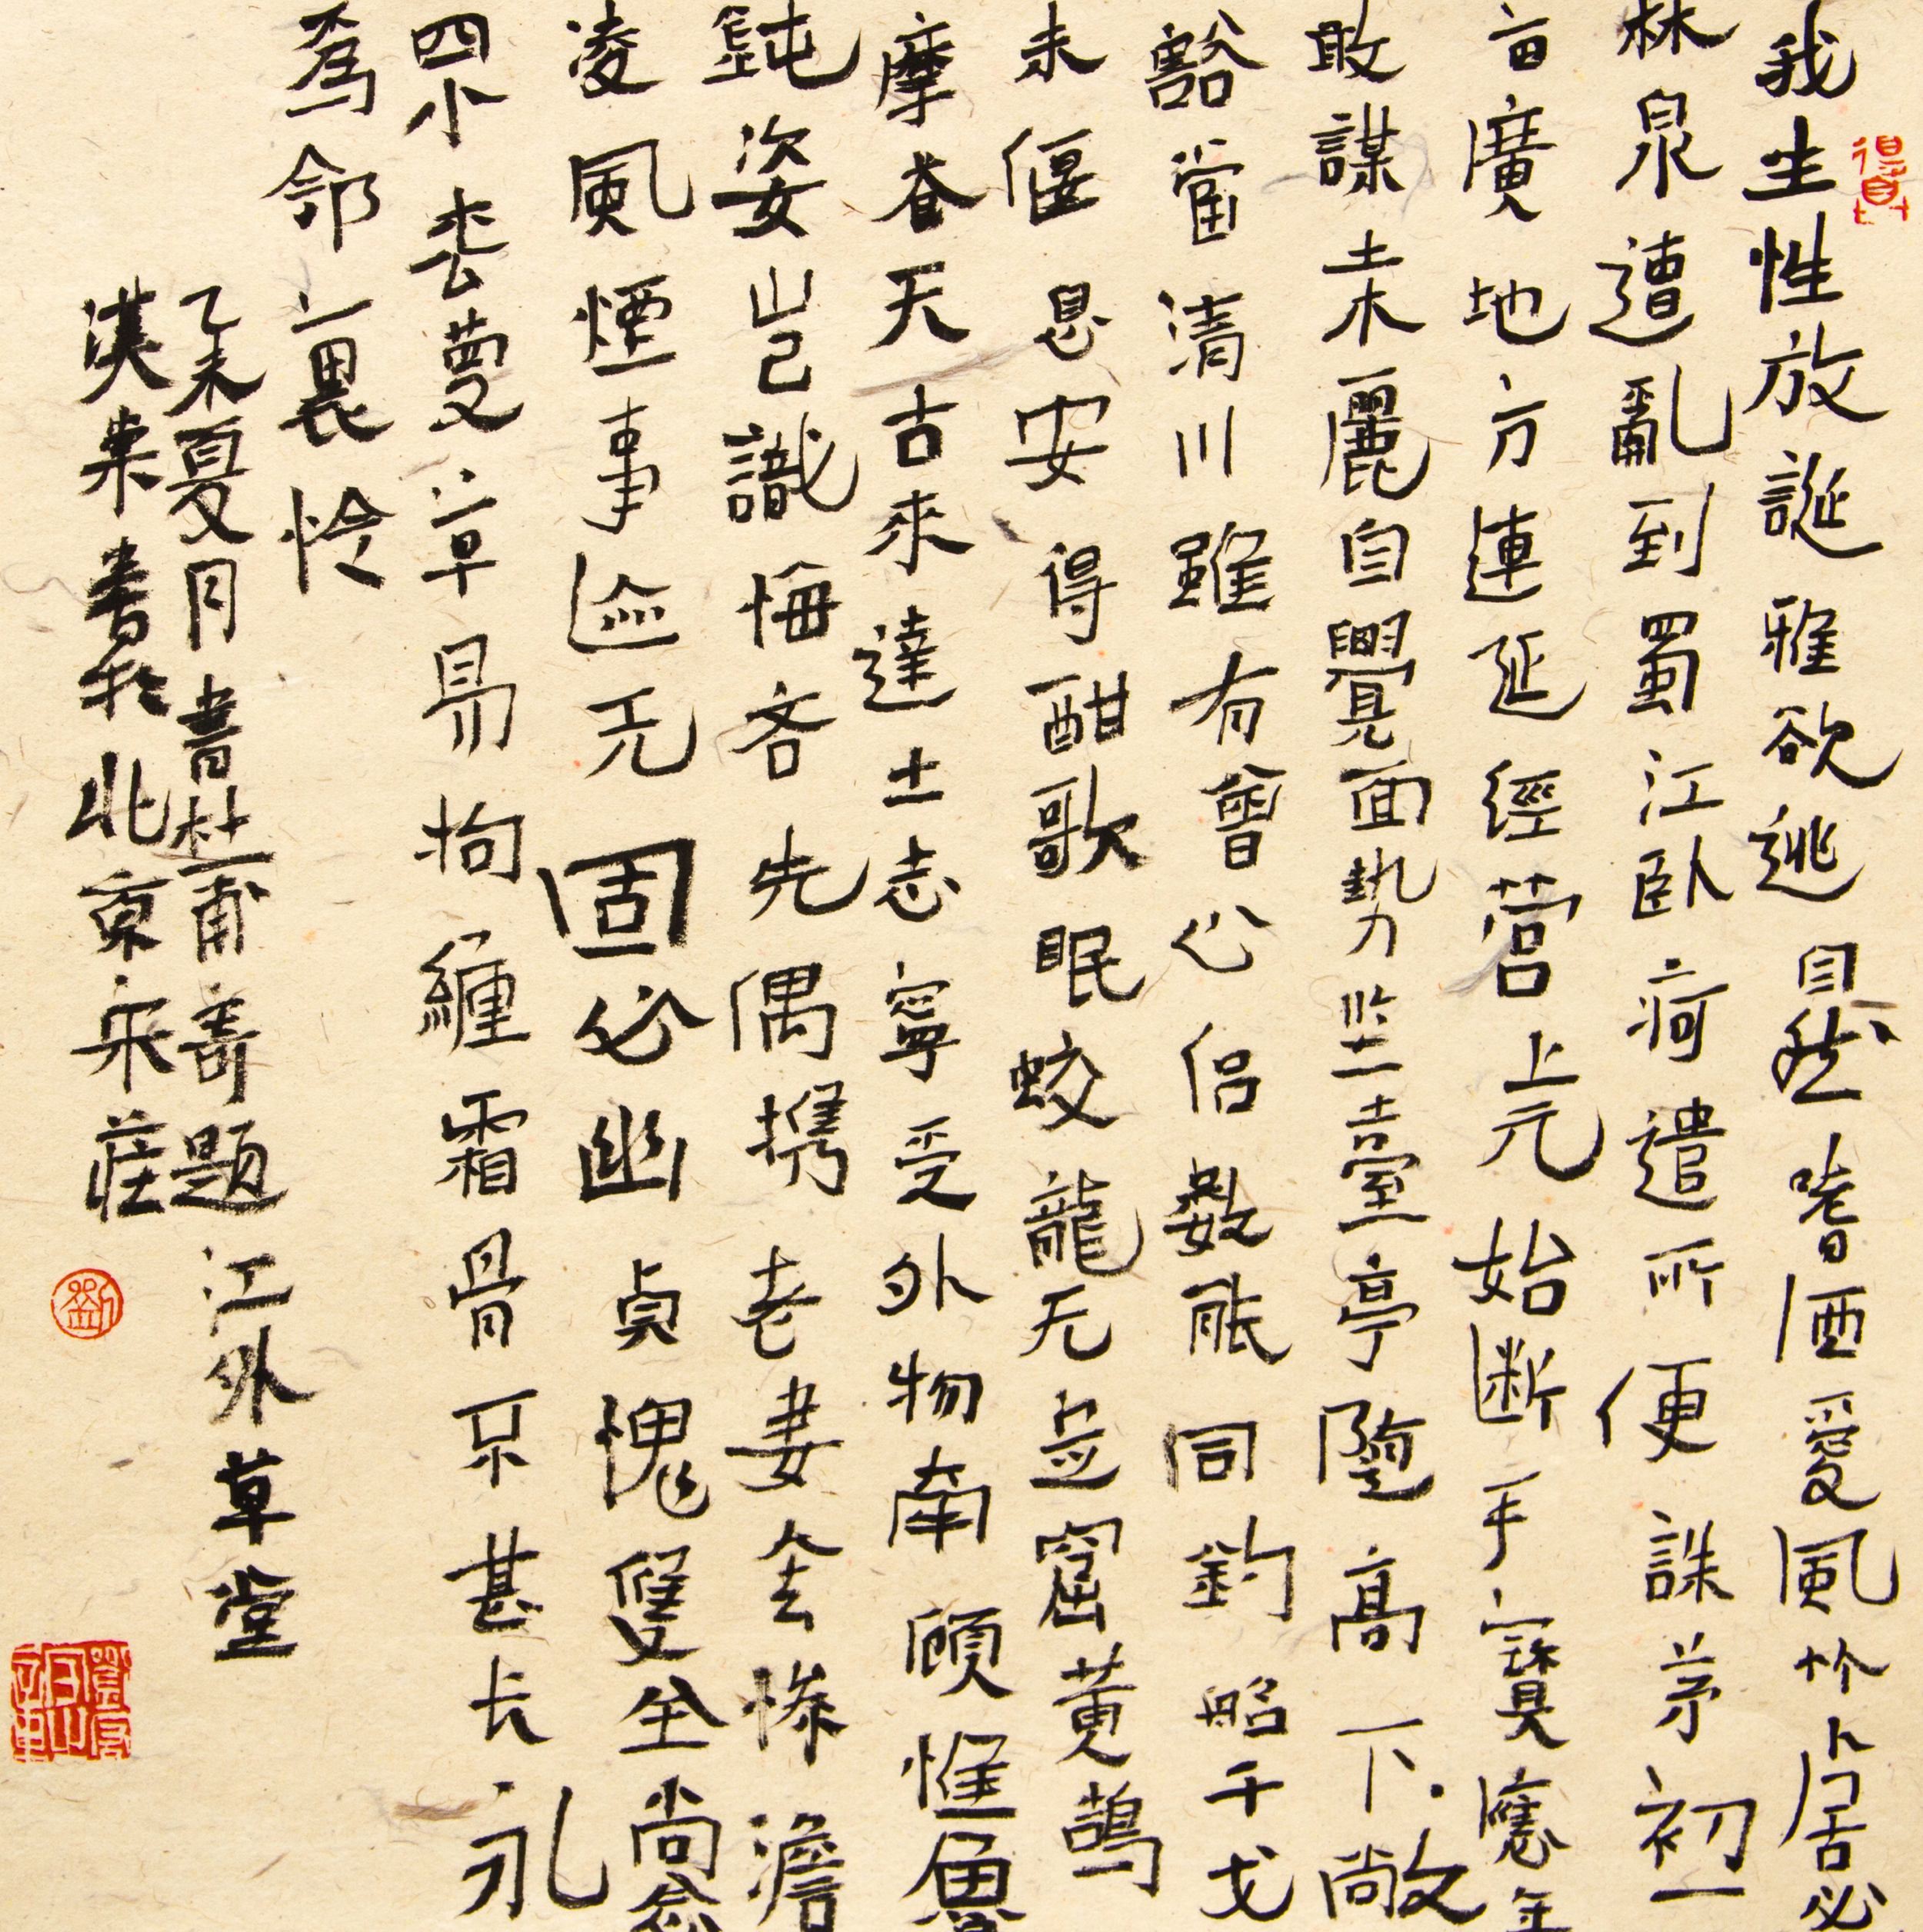 我生性放誕雅欲逃自然嗜酒愛風竹卜居必
林泉遭亂到蜀江臥痾遣所便誅茅初一
亩廣地方連延經营上元始断手寶應年
敢謀土木麗自覺面勢堅臺亭隨高下敞
豁當清川雖有會心侣數能同釣船干戈
未偃息安得酣歌眠蛟龍无定窟黃鵠
摩蒼天古來達士志寧受外物牽顧惟魯
鈍姿豈識悔吝先偶携老妻全慘澹
凌風煙事迹无固必幽貞愧雙全尚念
四小松蔓草易拘纏霜骨不甚长永
為鄰里怜
乙未夏月書杜甫寄题江外草堂
書於北京宋莊
劉